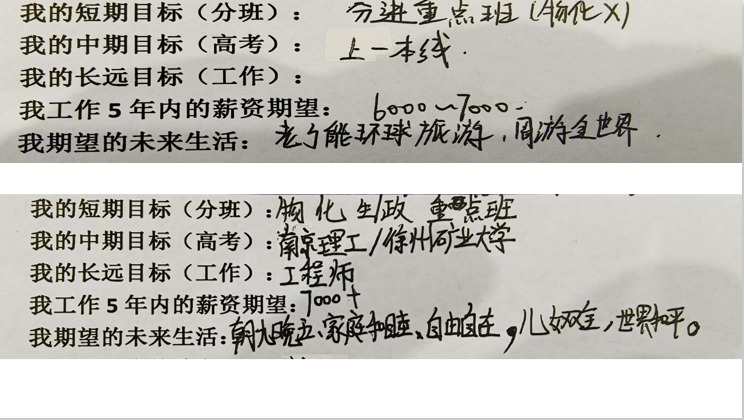 我的短期目标（分班）： 分进重点班（物化X）
我的中期目标（高考）： 上一本线.
我的长远目标（工作）：
我工作5年内的薪资期望： 6000～7000.
我期望的未来生活： 老了能环球旅游，周游全世界.
我的短期目标（分班）：物化生/政 重点班
我的中期目标（高考）：南京理工/徐州矿业大学
我的长远目标（工作）：工程师
我工作5年内的薪资期望：7000+
我期望的未来生活：朝九晚五、家庭和睦、自由自在，儿女双全，世界和平。